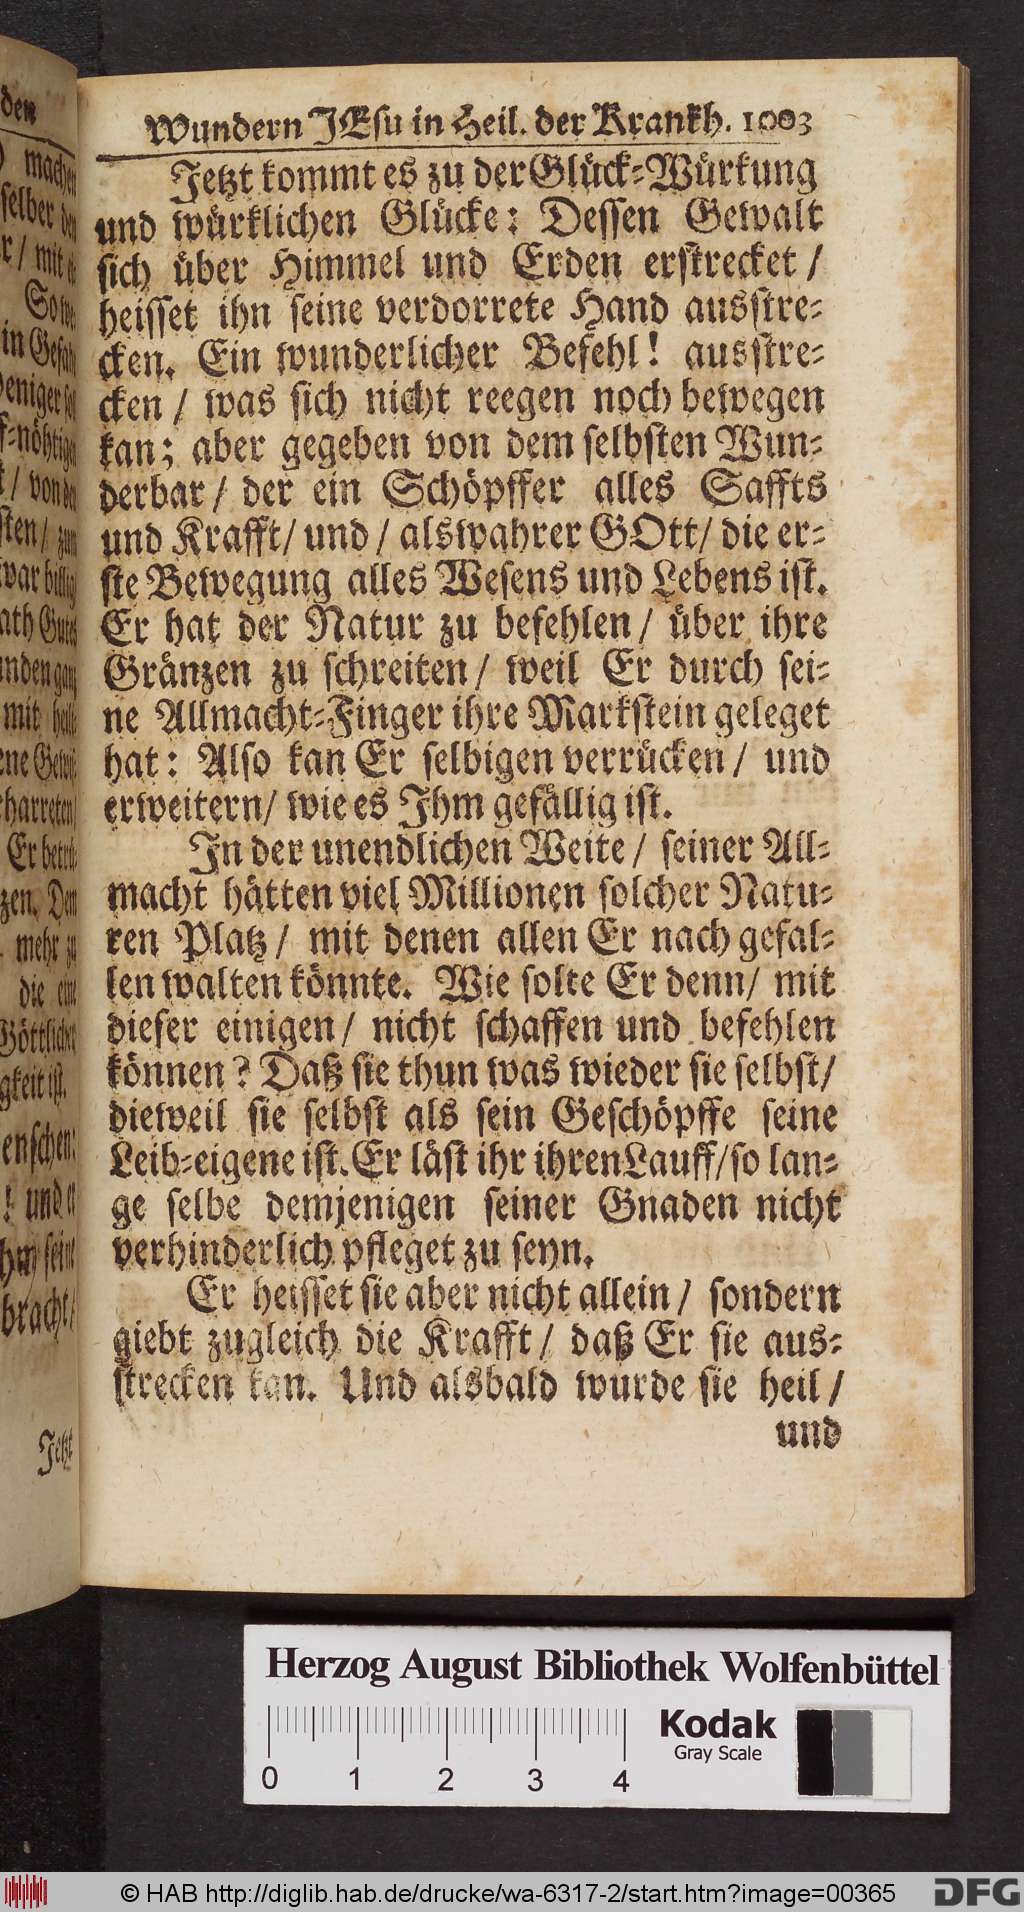 Wundern JEsu in Heil. der Krankh. 1003
Jetzt kommt es zu der Glück-Würkung
und würklichen Glücke: Dessen Gewalt
sich über Himmel und Erden erstrecket /
heisset ihn seine verdorrete Hand ausstre-
cken. Ein wunderlicher Befehl! ausstre-
cken / was sich nicht reegen noch bewegen
kan; aber gegeben von dem selbsten Wun-
derbar / der ein Schöpffer alles Saffts
und Krafft / und / als wahrer GOtt / die er-
ste Bewegung alles Wesens und Lebens ist.
Er hat der Natur zu befehlen / über ihre
Gränzen zu schreiten / weil Er durch sei-
ne Allmacht-Finger ihre Markstein geleget
hat: Also kan Er selbigen verrücken / und
erweitern / wie es Ihm gefällig ist.
In der unendlichen Weite / seiner All-
macht hätten viel Millionen solcher Natu-
ren Platz / mit denen allen Er nach gefal-
len walten könnte. Wie solte Er denn / mit
dieser einigen / nicht schaffen und befehlen
können? Daß sie thun was wieder sie selbst /
dieweil sie selbst als sein Geschöpffe seine
Leib-eigene ist. Er läst ihr ihren Lauff / so lan-
ge selbe demjenigen seiner Gnaden nicht
verhinderlich pfleget zu seyn.
Er heisset sie aber nicht allein / sondern
giebt zugleich die Krafft / daß Er sie aus-
strecken kan. Und alsbald wurde sie heil /
und
den
machen
selber den
/ mit
in Gefahr
weniger
-nöhtigen
/ von den
sten / zum
war billig
ath Gutes
mit
charreten /
Er betrü-
zen. Dem
mehr zu
die eine
Göttlicher
gkeit ist.
enschen:
! und er
seine
bracht /
Jetzt
Herzog August Bibliothek Wolfenbüttel
Kodak
Gray Scale
0 1 2 3 4
© HAB http://diglib.hab.de/drucke/wa-6317-2/start.htm?image=00365
DFG